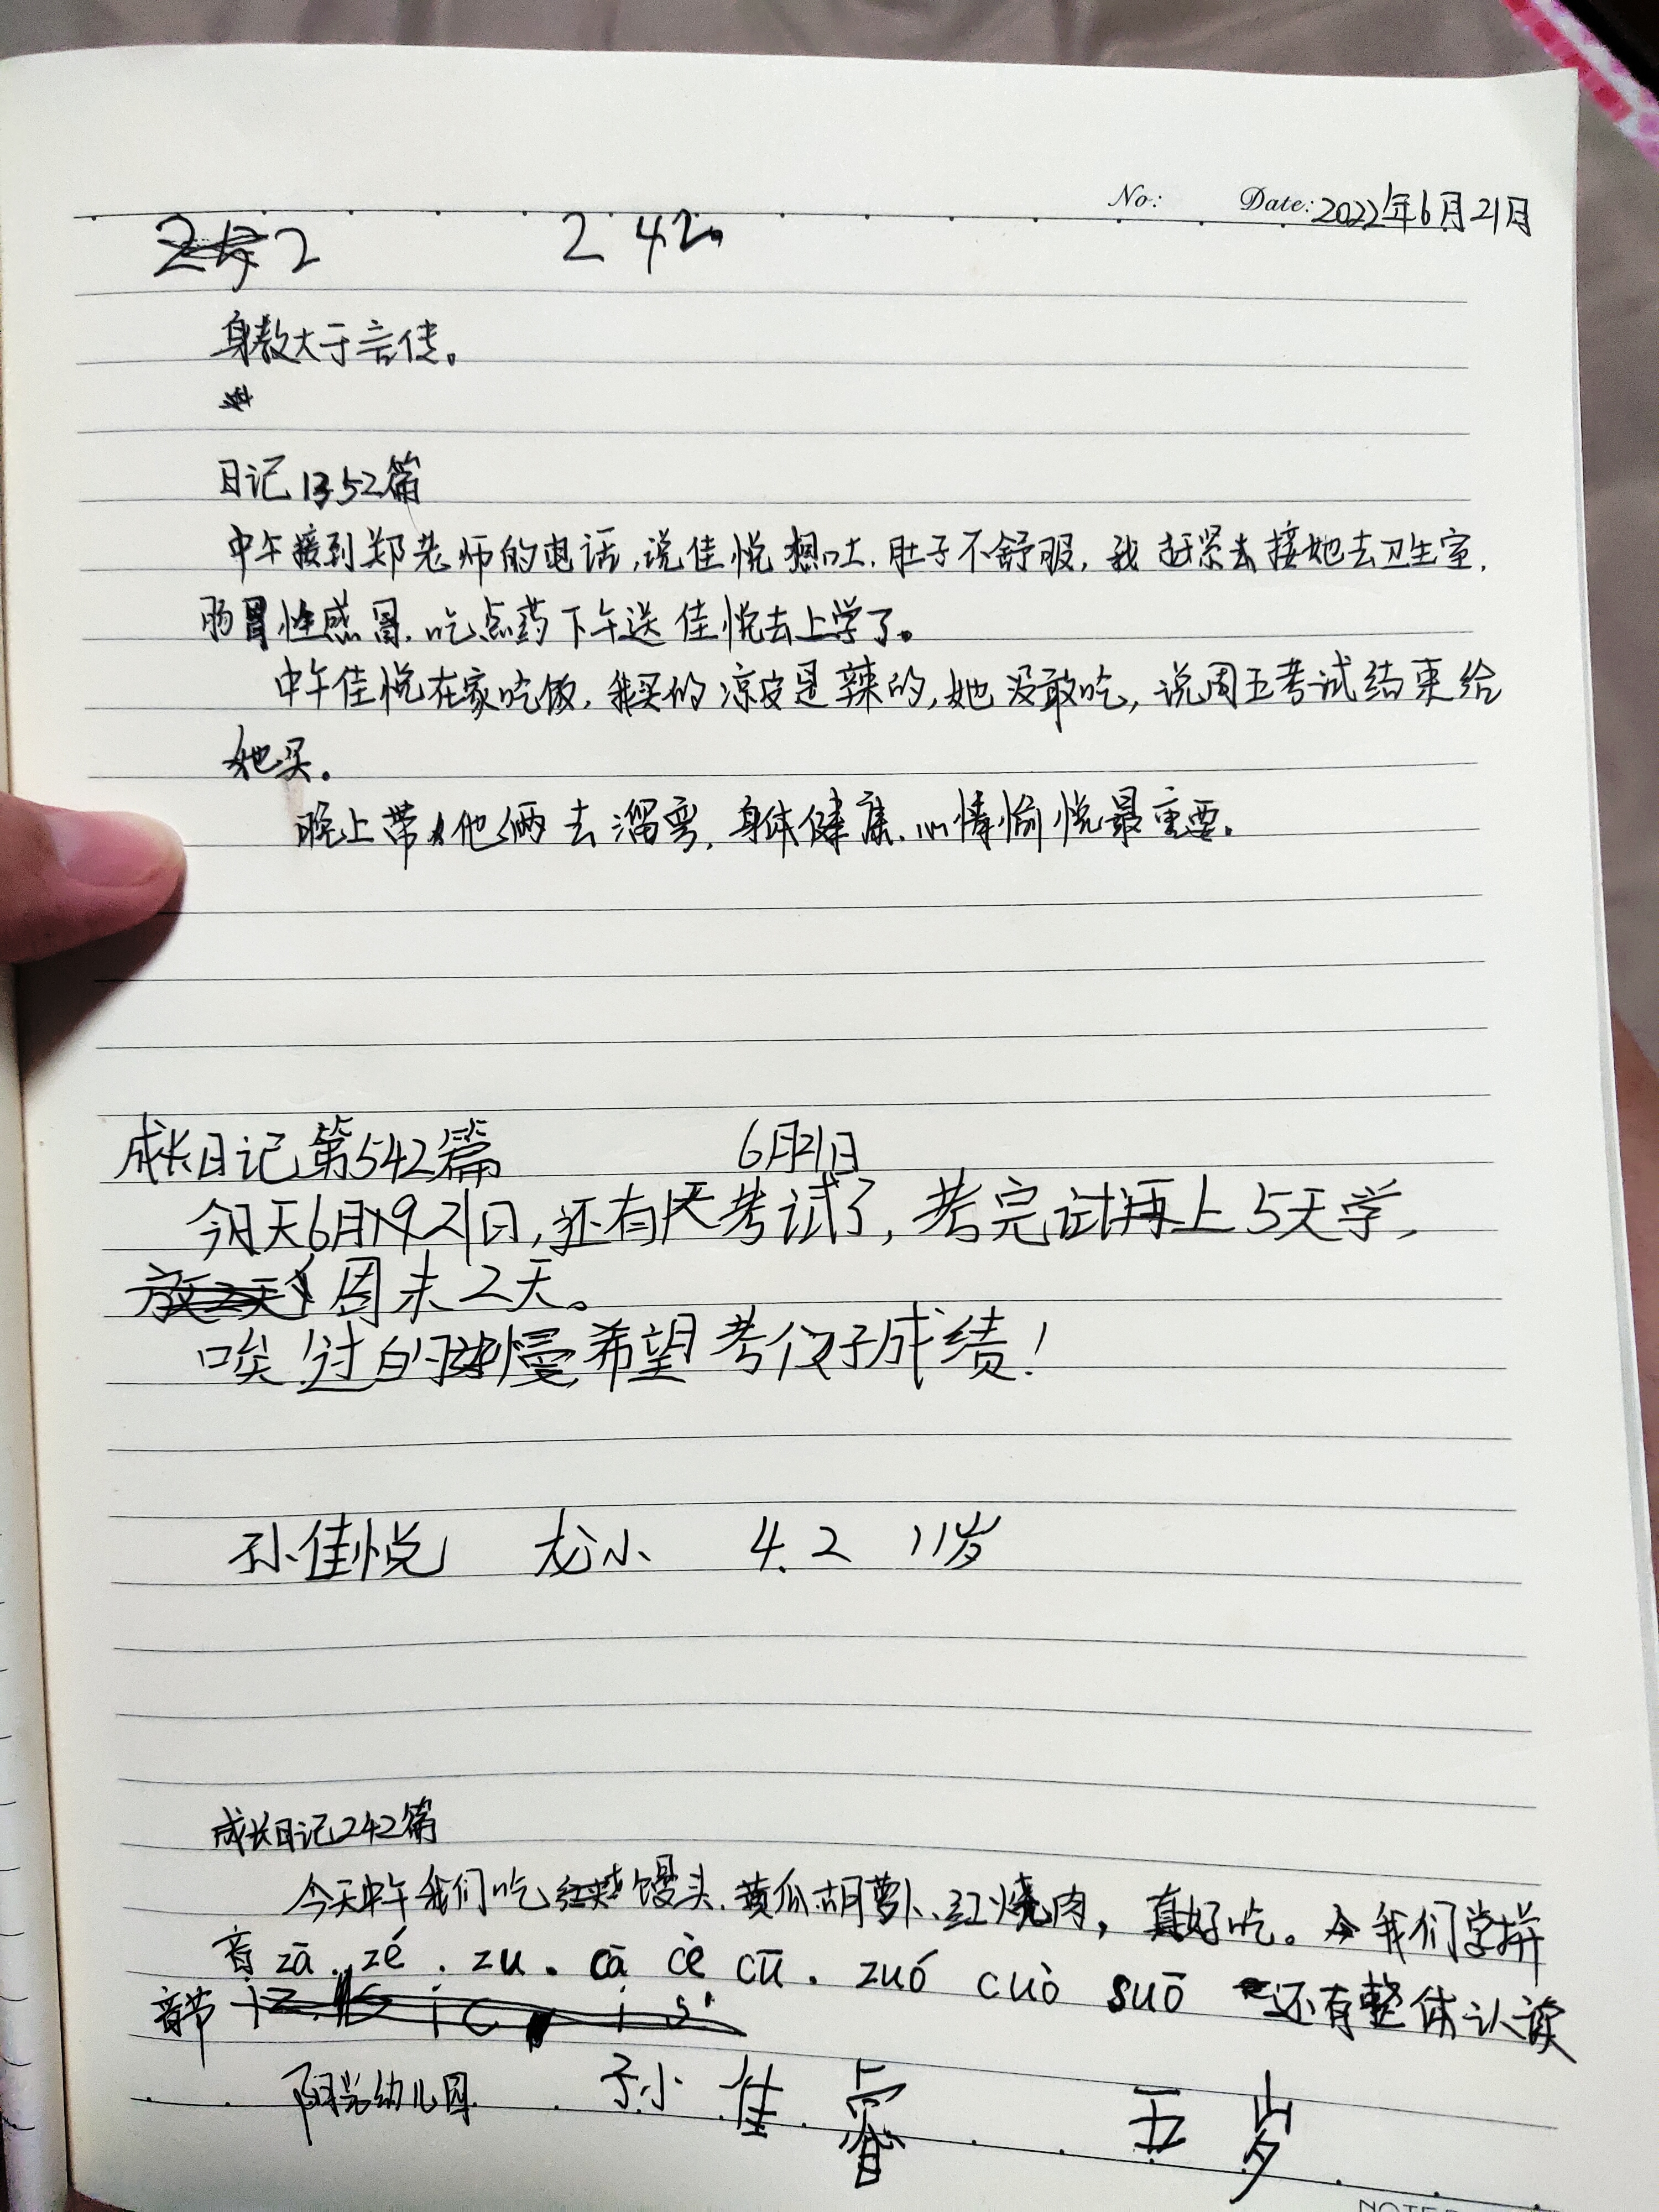 No: Date: 2022年6月21日
2 2 42
身教大于言传。
日记1352篇
中午接到郑老师的电话,说佳悦想吐.肚子不舒服,我赶紧去接她去卫生室.
肠胃性感冒.吃点药下午送佳悦去上学了。
中午佳悦在家吃饭,我买的凉皮是辣的,她没敢吃,说周五考试结束给
她买。
晚上带他俩去溜弯,身体健康.心情愉悦最重要。
成长日记第542篇 6月21日
今天6月21日,还有天考试了,考完试再上5天学,
周末2天。
唉!过的慢,希望考个好成绩!
孙佳悦 龙小 4.2 11岁
成长日记242篇
今天中午我们吃馒头.黄瓜.胡萝卜、红烧肉,真好吃。我们学拼
音zā.zé.zu.cā cè cū.zuó cuò suō 还有整体认读
音节
阳光幼儿园 孙佳睿 五岁